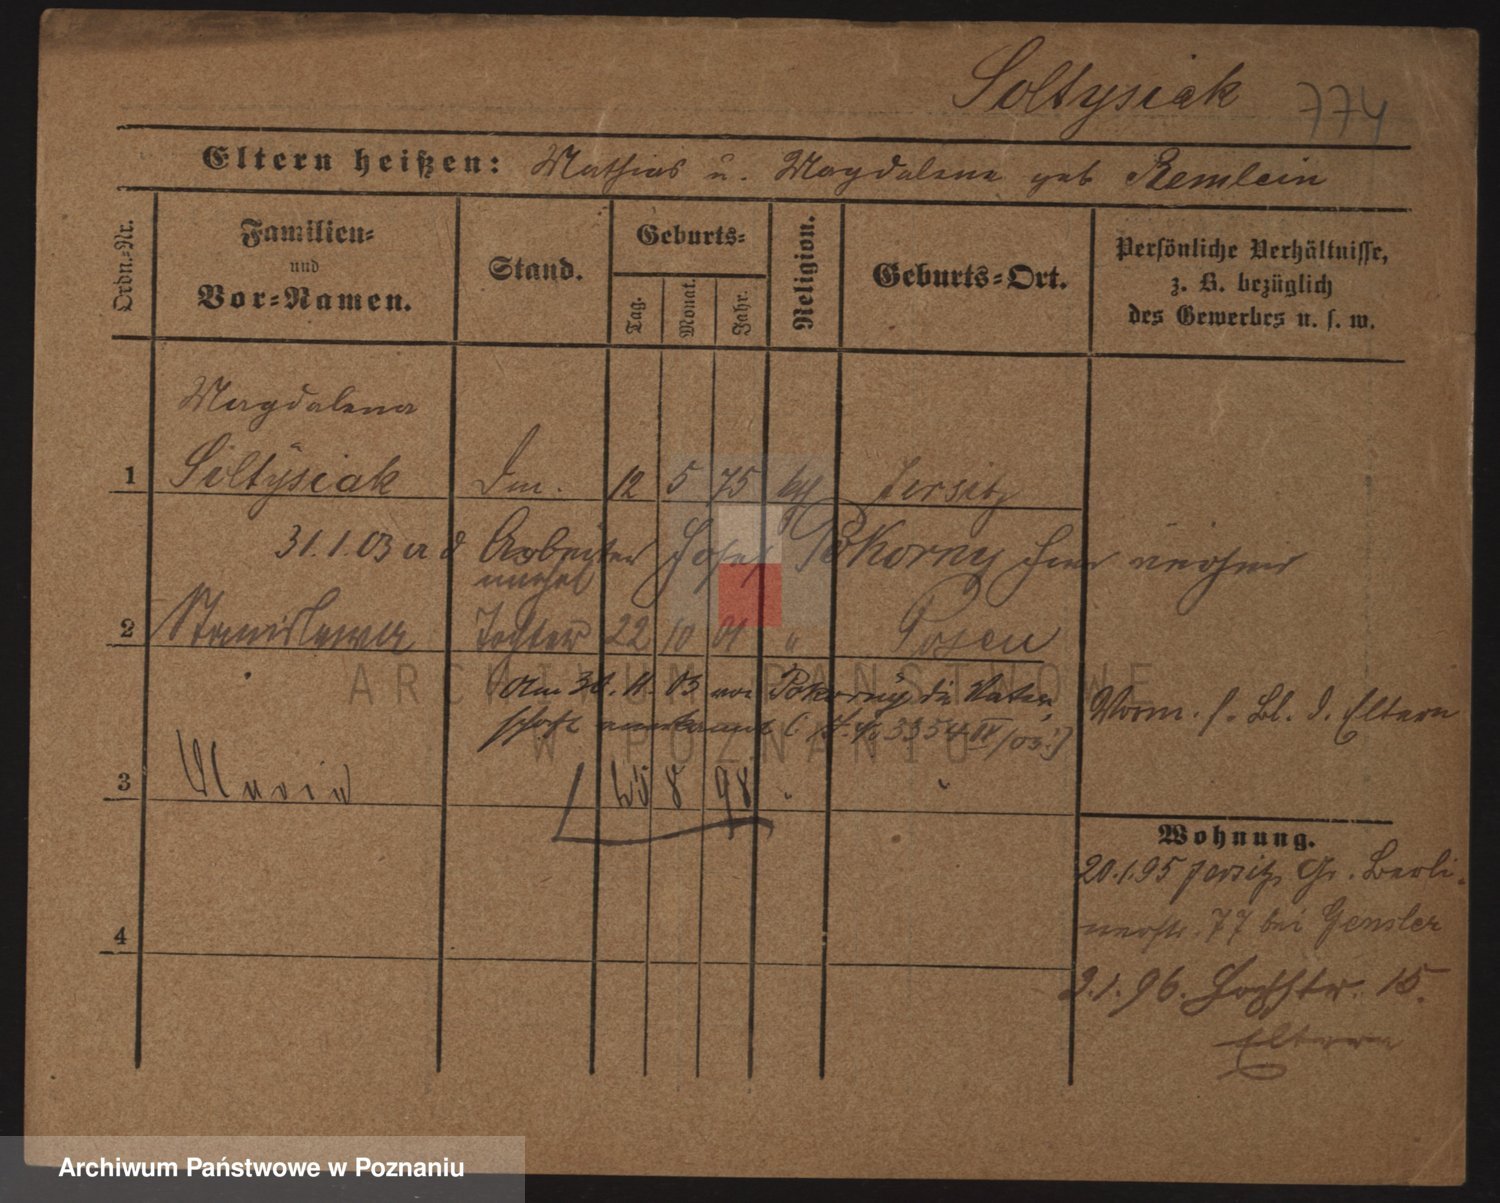 Soltysiak 774
Eltern heißen: Mathias u. Magdalena geb Remlein
Ordn.-Nr.
Familien-
und
Vor-Namen.
Stand.
Geburts-
Tag.
Monat.
Jahr.
Religion.
Geburts-Ort.
Persönliche Verhältnisse,
z. B. bezüglich
des Gewerbes u. s. w.
Magdalena
1 Soltysiak 12 5 75 Jersitz
31.1.03 a d Arbeiter Josef Pokorny hier
unehel
2 Stanislawa Tochter 22 10 01 " Posen
Am 30. 11. 03 von Pokorny die Vater-
schaft anerkannt
Vorm. s. Bl. d. Eltern
3 Maria 8 98 " "
Wohnung.
20.1.95 Jersitz, Gr. Berli-
nerstr. 77 bei Gensler
4
2.1.96. 15.
Eltern
ARCHIWUM PAŃSTWOWE
W POZNANIU
Archiwum Państwowe w Poznaniu